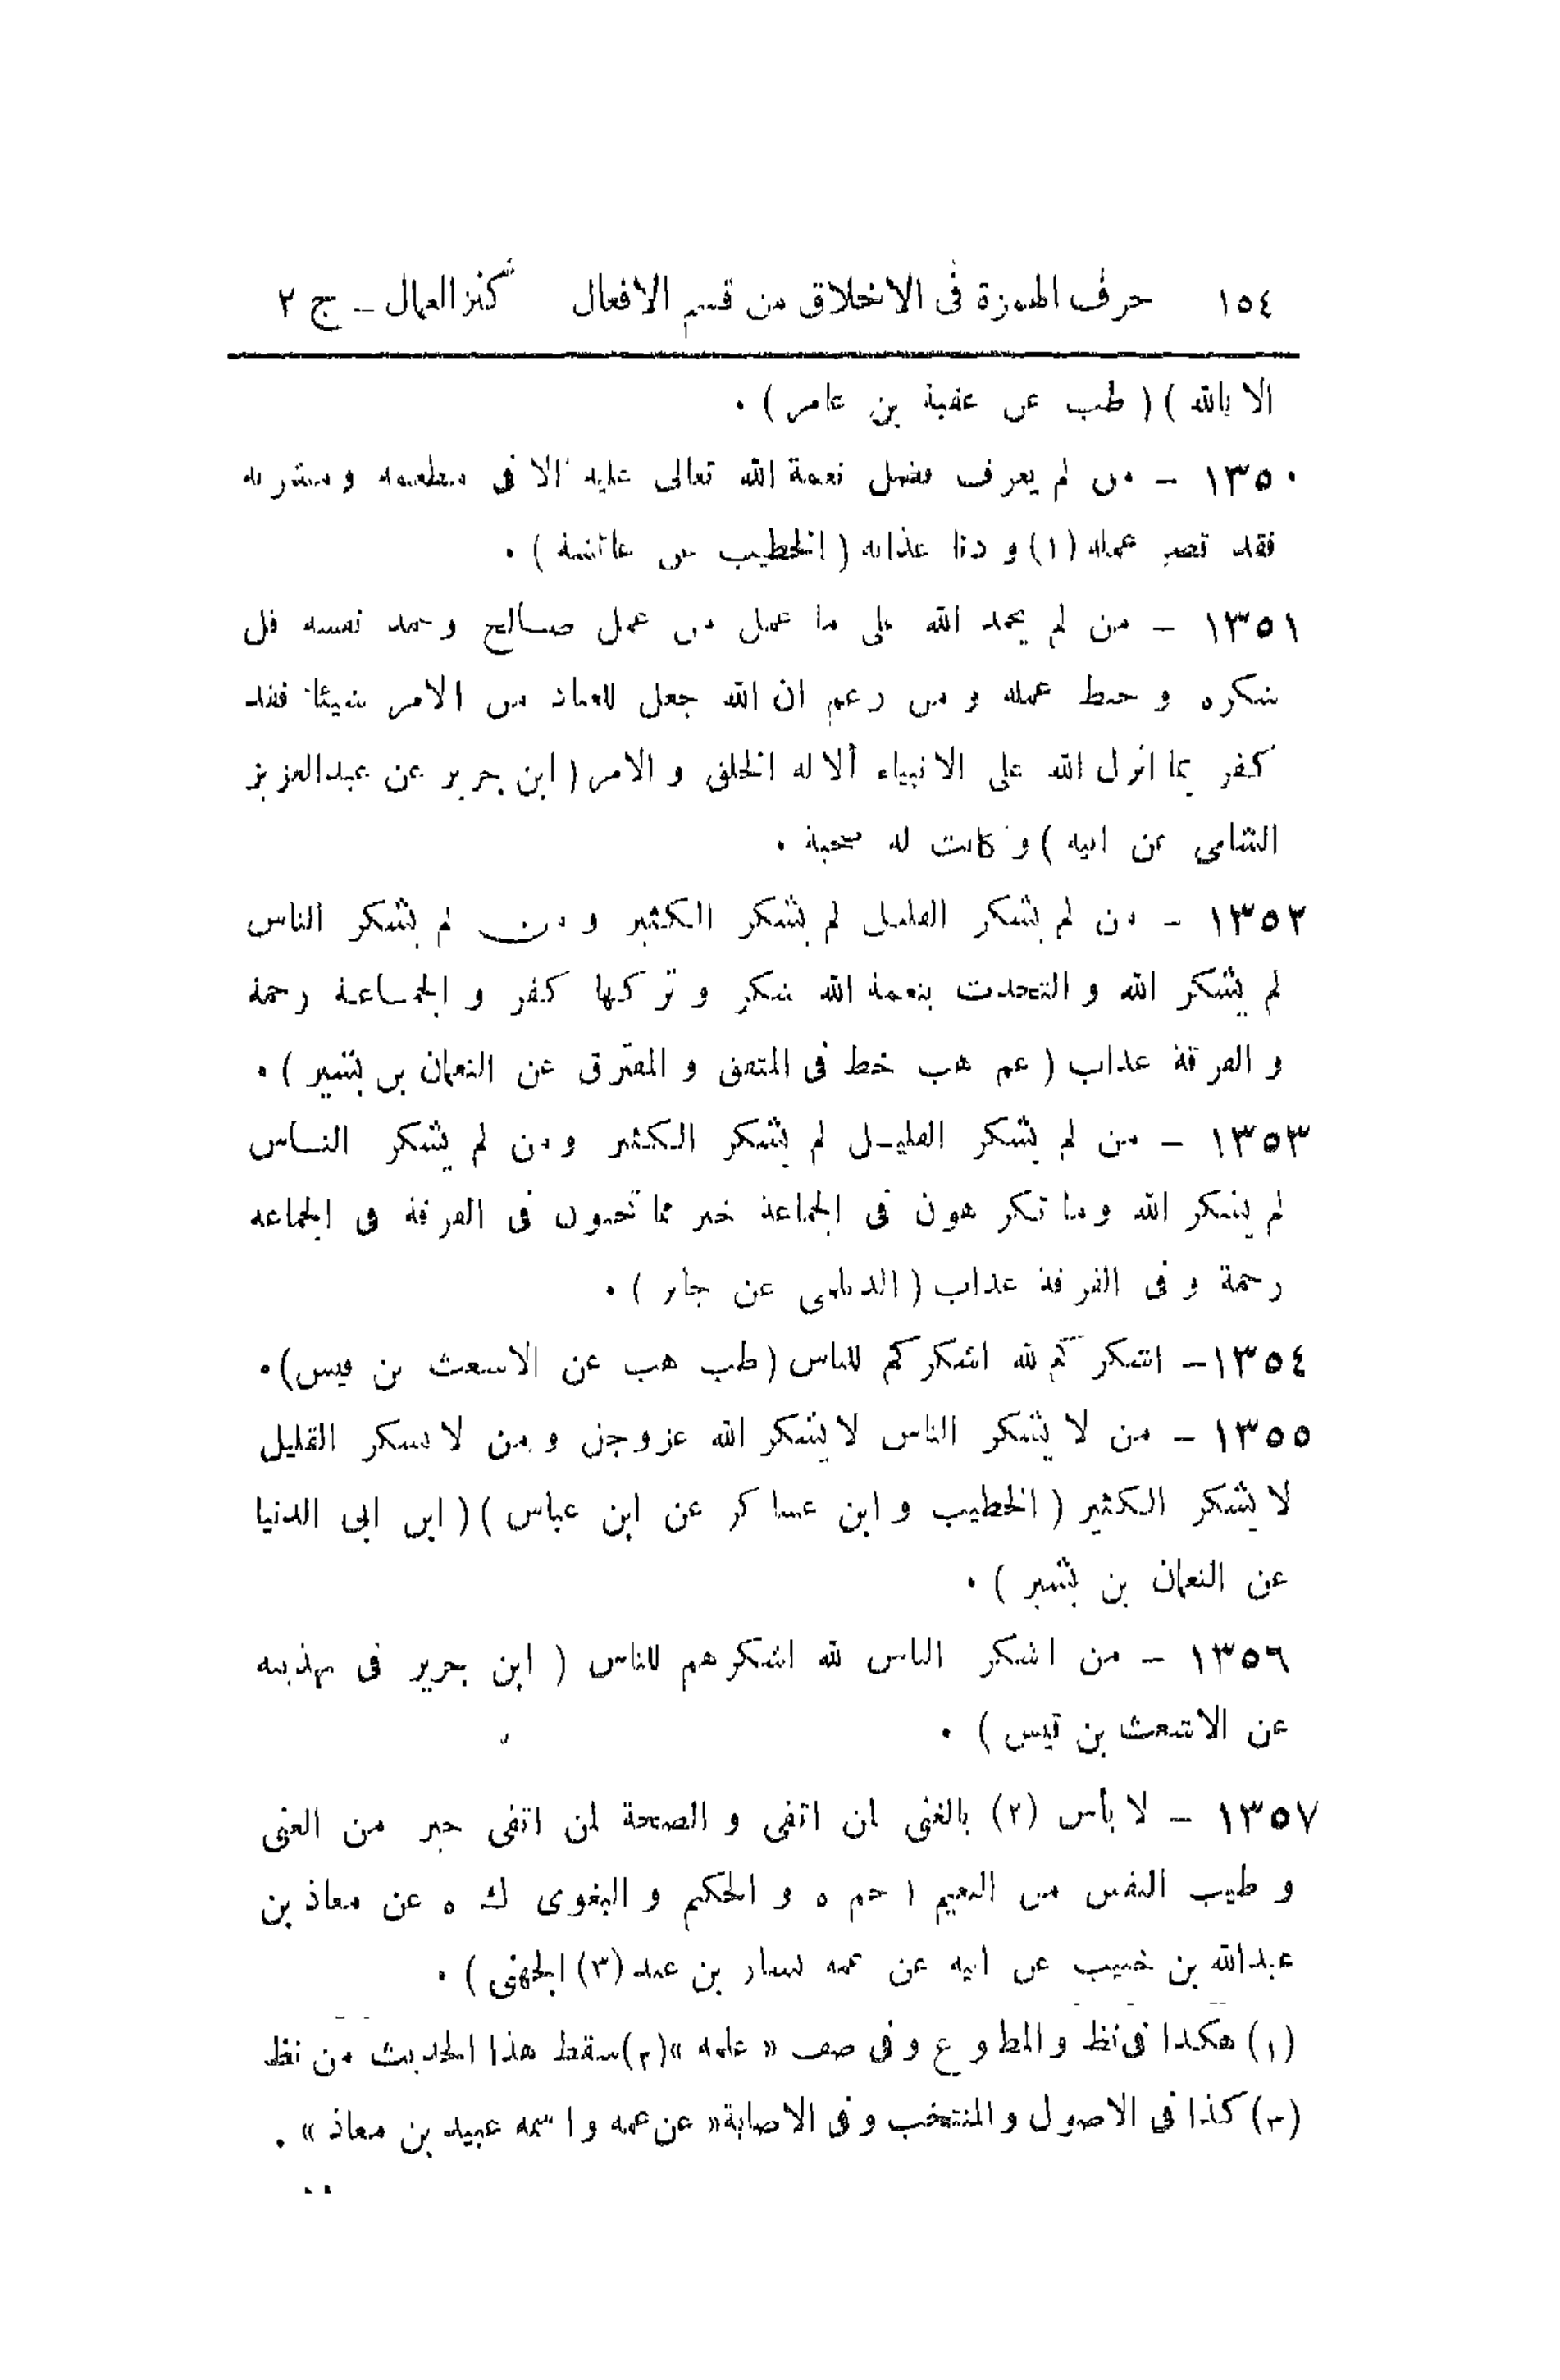 ١٥٤ حرف الهمزة فى الاخلاق من قسم الافعال كنز العمال ـ ج ٢
الا بالله ) ( طب عن عقبة بن عامر ) .
١٣٥٠ - من لم يعرف فضل نعمة الله تعالى عليه الا فى مطعمه و مشربه
فقد قصر عمله (١) و دنا عذابه ( الخطيب عن عائشة ) .
١٣٥١ - من لم يحمد الله على ما عمل من عمل صالح و حمد نفسه قل
شكره و حبط عمله و من زعم ان الله جعل للعباد من الامر شيئا فقد
كفر بما انزل الله على الانبياء ألا له الخلق و الامر ( ابن جرير عن عبدالعزيز
الشامى عن ابيه ) و كانت له صحبة .
١٣٥٢ - من لم يشكر القليل لم يشكر الكثير و من لم يشكر الناس
لم يشكر الله و التحدث بنعمة الله شكر و تركها كفر و الجماعة رحمة
و الفرقة عذاب ( عم هب خط فى المتفق و المفترق عن النعمان بن بشير ) .
١٣٥٣ - من لم يشكر القليل لم يشكر الكثير و من لم يشكر الناس
لم يشكر الله و ما تكرهون فى الجماعة خير مما تحبون فى الفرقة فى الجماعة
رحمة و فى الفرقة عذاب ( الديلمى عن جابر ) .
١٣٥٤ - اشكركم لله اشكركم للناس ( طب هب عن الاشعث بن قيس ) .
١٣٥٥ - من لا يشكر الناس لا يشكر الله عز وجل و من لا يشكر القليل
لا يشكر الكثير ( الخطيب و ابن عساكر عن ابن عباس ) ( ابن ابى الدنيا
عن النعمان بن بشير ) .
١٣٥٦ - من اشكر الناس لله اشكرهم للناس ( ابن جرير فى تهذيبه
عن الاشعث بن قيس ) .
١٣٥٧ - لا بأس (٢) بالغنى لمن اتقى و الصحة لمن اتقى خير من الغنى
و طيب النفس من النعيم ( حم ه و الحكيم و البغوى ك ه عن معاذ بن
عبدالله بن خبيب عن ابيه عن عمه يسار بن عبد (٣) الجهنى ) .
(١) هكذا فى نظ و المطبوع و فى صف « علمه » (٢) سقط هذا الحديث من نظ
(٣) كذا فى الاصول و المنتخب و فى الاصابة « عن عمه و اسمه عبيد بن معاذ » .